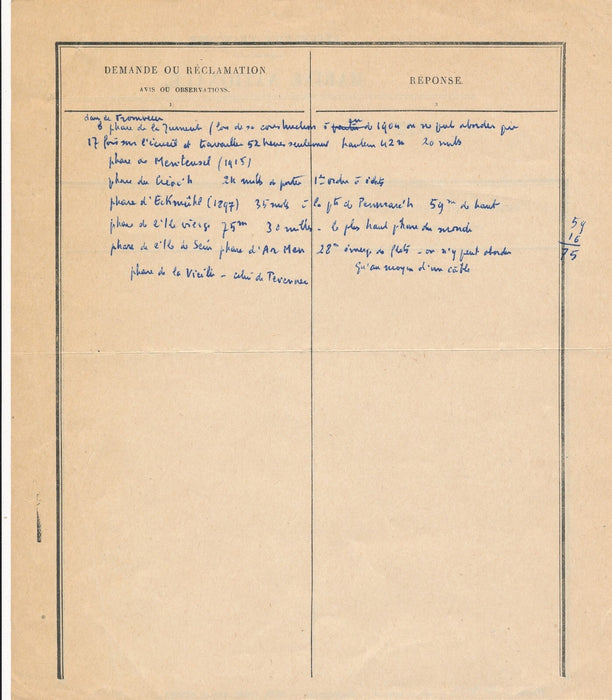 DEMANDE OU RÉCLAMATION
AVIS OU OBSERVATIONS.
RÉPONSE.
dans le Fromveur
phare de la Jument (lors de sa construction à en de 1904 on ne put aborder que
17 fois sur l'écueil et travailler 52 heures seulement hauteur 42m 20 mills
phare de (1915)
phare du Créac'h 24 mills de portée 1er ordre à éclats
phare d'Eckmühl (1897) 35 mills à la pte de Penmarc'h 59m de haut
phare de l'Ile vierge 75m 30 mills - le plus haut phare du monde
phare de l'Ile de Sein phare d'Ar Men 28m émerge des flots - on n'y peut aborder
qu'au moyen d'un câble
phare de la Vieille - celui de
59
16
75